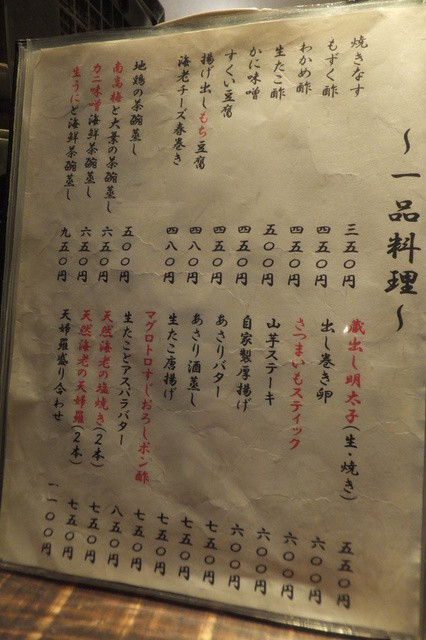 ～一品料理～
焼きなす 三五〇円
もずく酢 四五〇円
わかめ酢 四五〇円
生たこ酢 五〇〇円
かに味噌 四五〇円
すくい豆腐 四五〇円
揚げ出しもち豆腐 四八〇円
海老チーズ春巻き 四八〇円
地鶏の茶碗蒸し 五〇〇円
南高梅と大葉の茶碗蒸し 六五〇円
カニ味噌海鮮茶碗蒸し 六五〇円
生うにと海鮮茶碗蒸し 九五〇円
蔵出し明太子(生・焼き) 五五〇円
出し巻き卵 六〇〇円
さつまいもスティック 六〇〇円
山芋ステーキ 六〇〇円
自家製厚揚げ 六〇〇円
あさりバター 七五〇円
あさり酒蒸し 七五〇円
生たこ唐揚げ 七五〇円
マグロトロすじおろしポン酢 七五〇円
生たことアスパラバター 八五〇円
天然海老の塩焼き(2本) 七五〇円
天然海老の天婦羅(2本) 七五〇円
天婦羅盛り合わせ 一一〇〇円